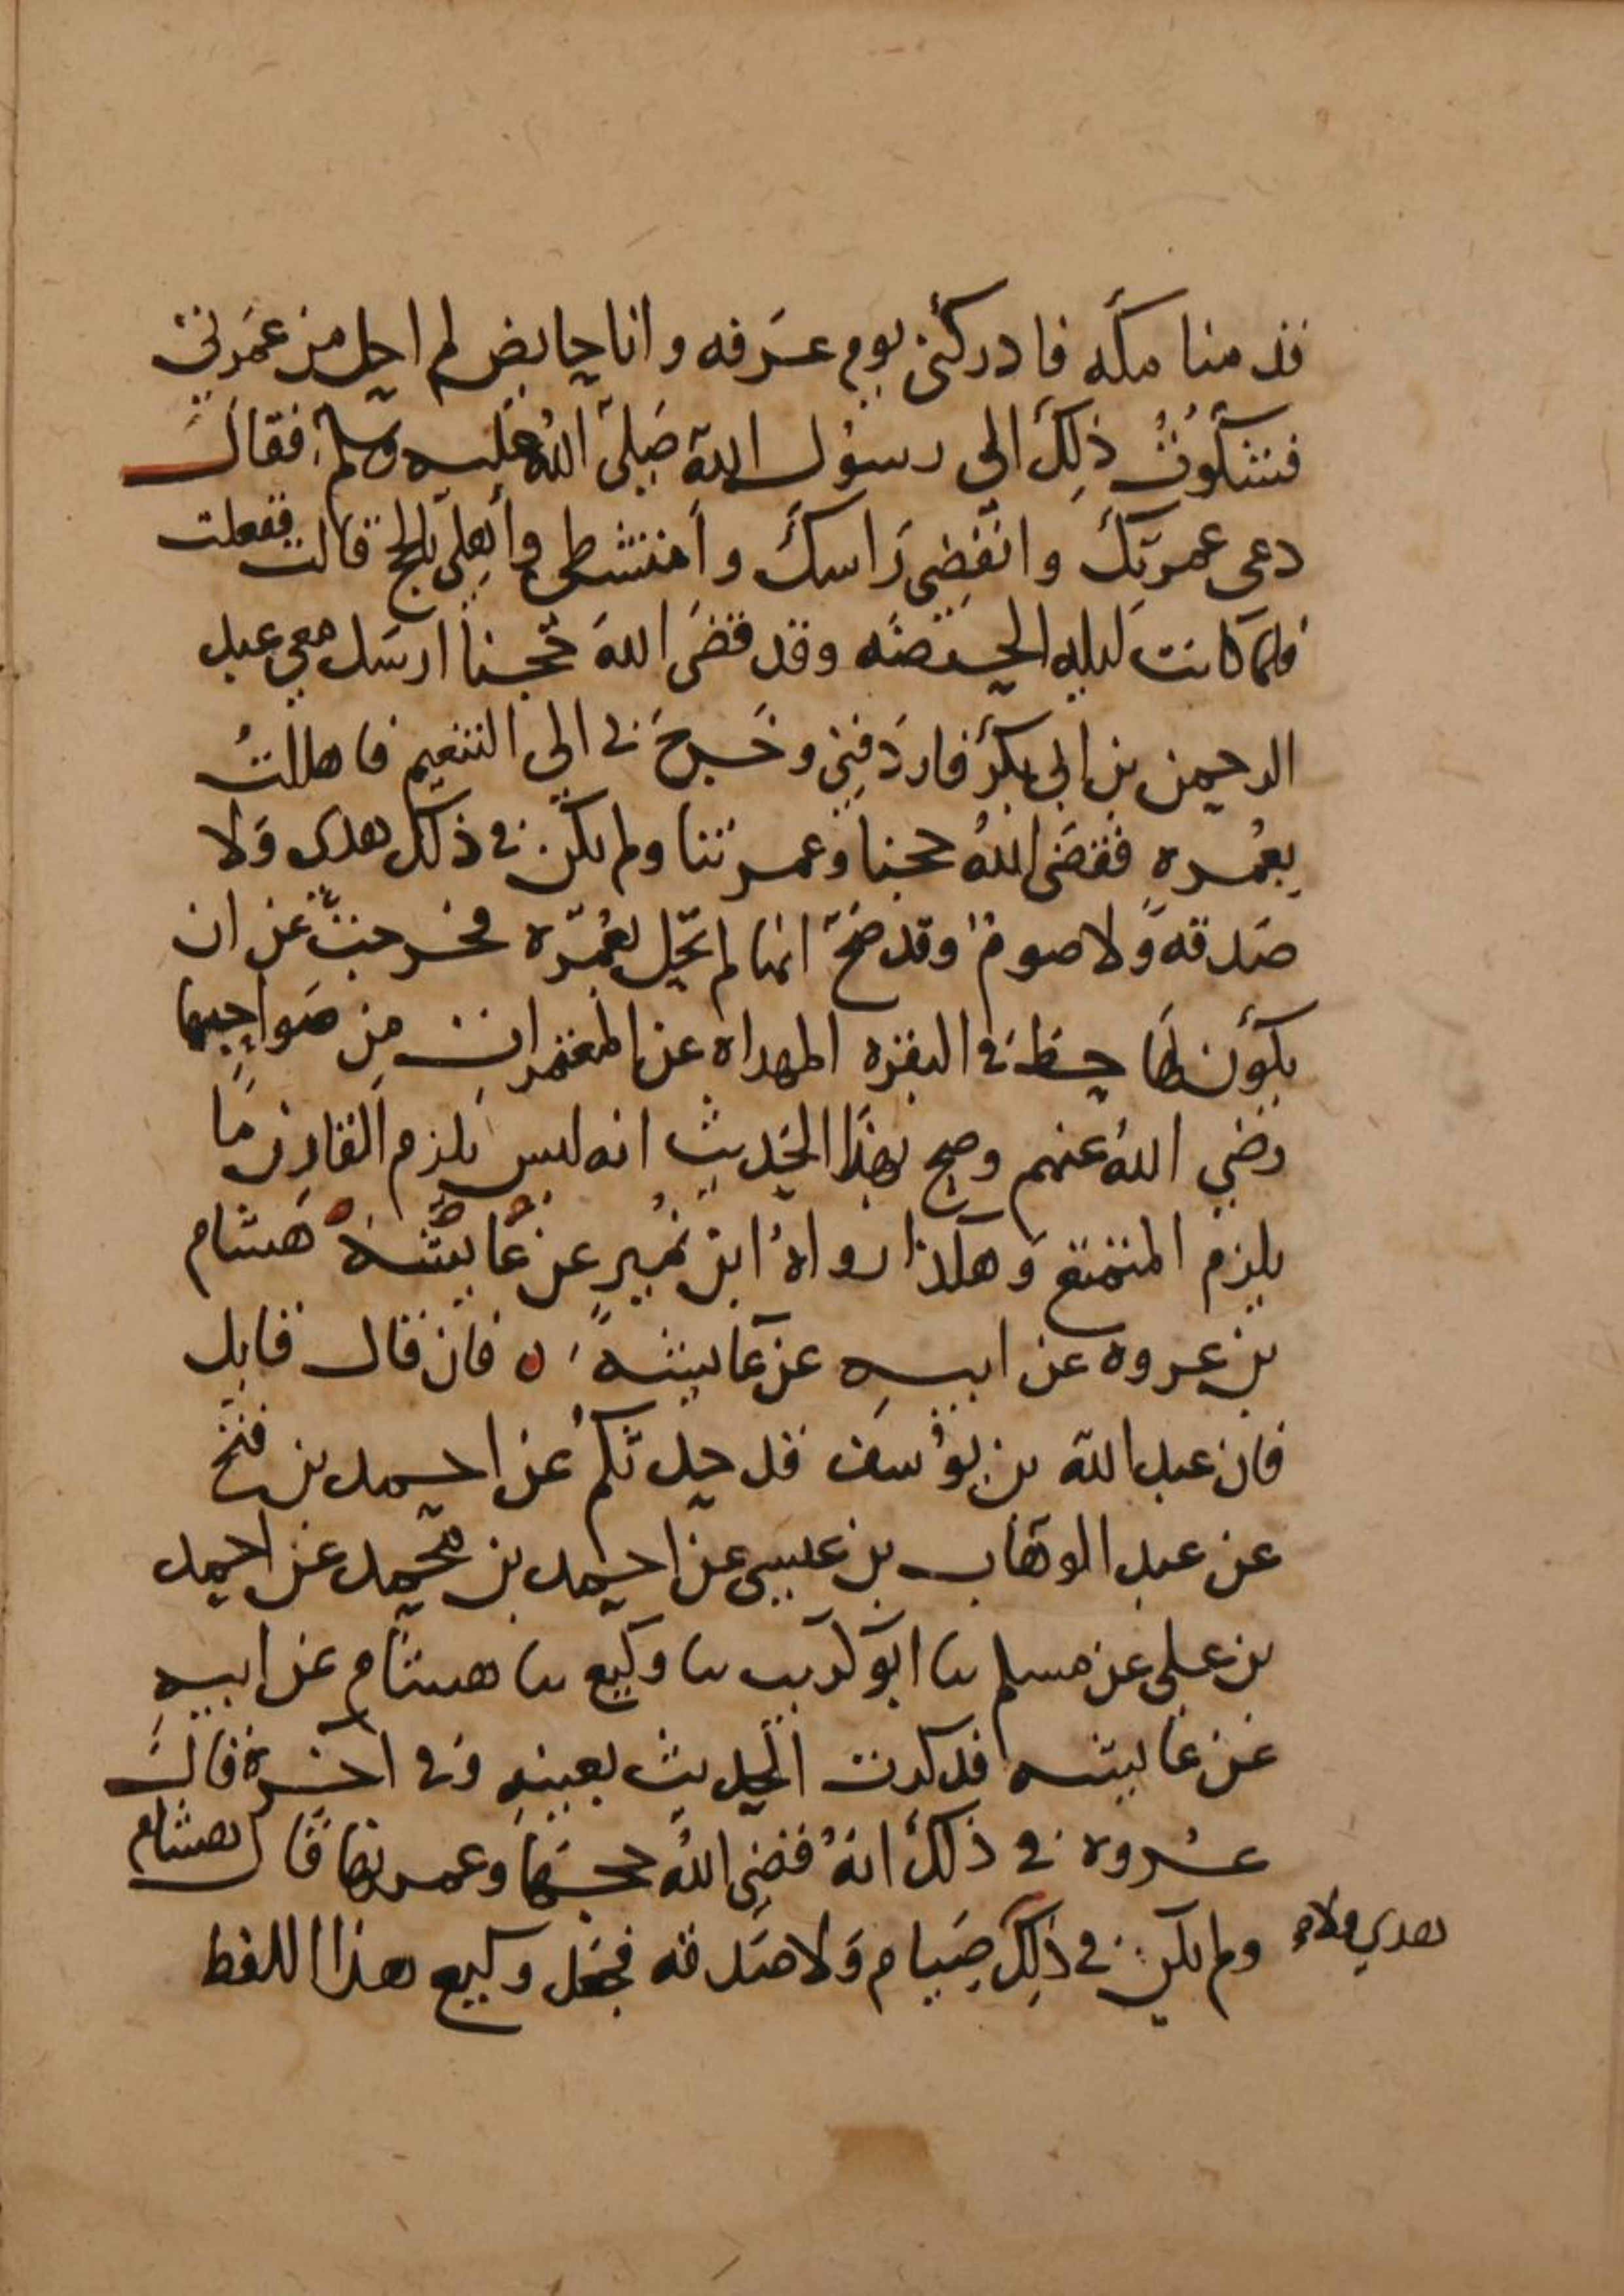 قدمنا مكه فادركنى يوم عرفه وانا حايض لم احل من عمرتي
فشكوت ذلك الى رسول الله صلى الله عليه وسلم فقال
دعى عمرتك وانقضى راسك وامتشطى وأهلى بالحج قالت ففعلت
فلما كانت ليله الحصبه وقد قضى الله حجنا ارسل معي عبد
الرحمن بن ابي بكر فاردفني وخرج بي الى التنعيم فاهللت
بعمره فقضى الله حجنا وعمرتنا ولم يكن في ذلك هدى ولا
صدقه ولا صوم وقد صح انها لم تحل بعمره فخرجت عن ان
يكون لها حظ في البقره المهداه عن المعتمرات من صواحبها
رضي الله عنهم وصح بهذا الحديث انه ليس يلزم القارن ما
يلزم المتمتع وهكذا رواه ابن نمير عن عايشه هشام
بن عروه عن ابيه عن عايشه ه فان قال قايل
فان عبد الله بن يوسف قد حدثكم عن احمد بن فتح
عن عبد الوهاب بن عيسى عن احمد بن محمد عن احمد
بن علي عن مسلم نا ابو كريب نا وكيع نا هشام عن ابيه
عن عايشه فذكرت الحديث بعينه وفي اخره قال
عروه في ذلك انه قضى الله حجها وعمرتها قال هشام
ولم يكن في ذلك صيام ولا صدقه فجعل وكيع هذا اللفظ
هدي ولا